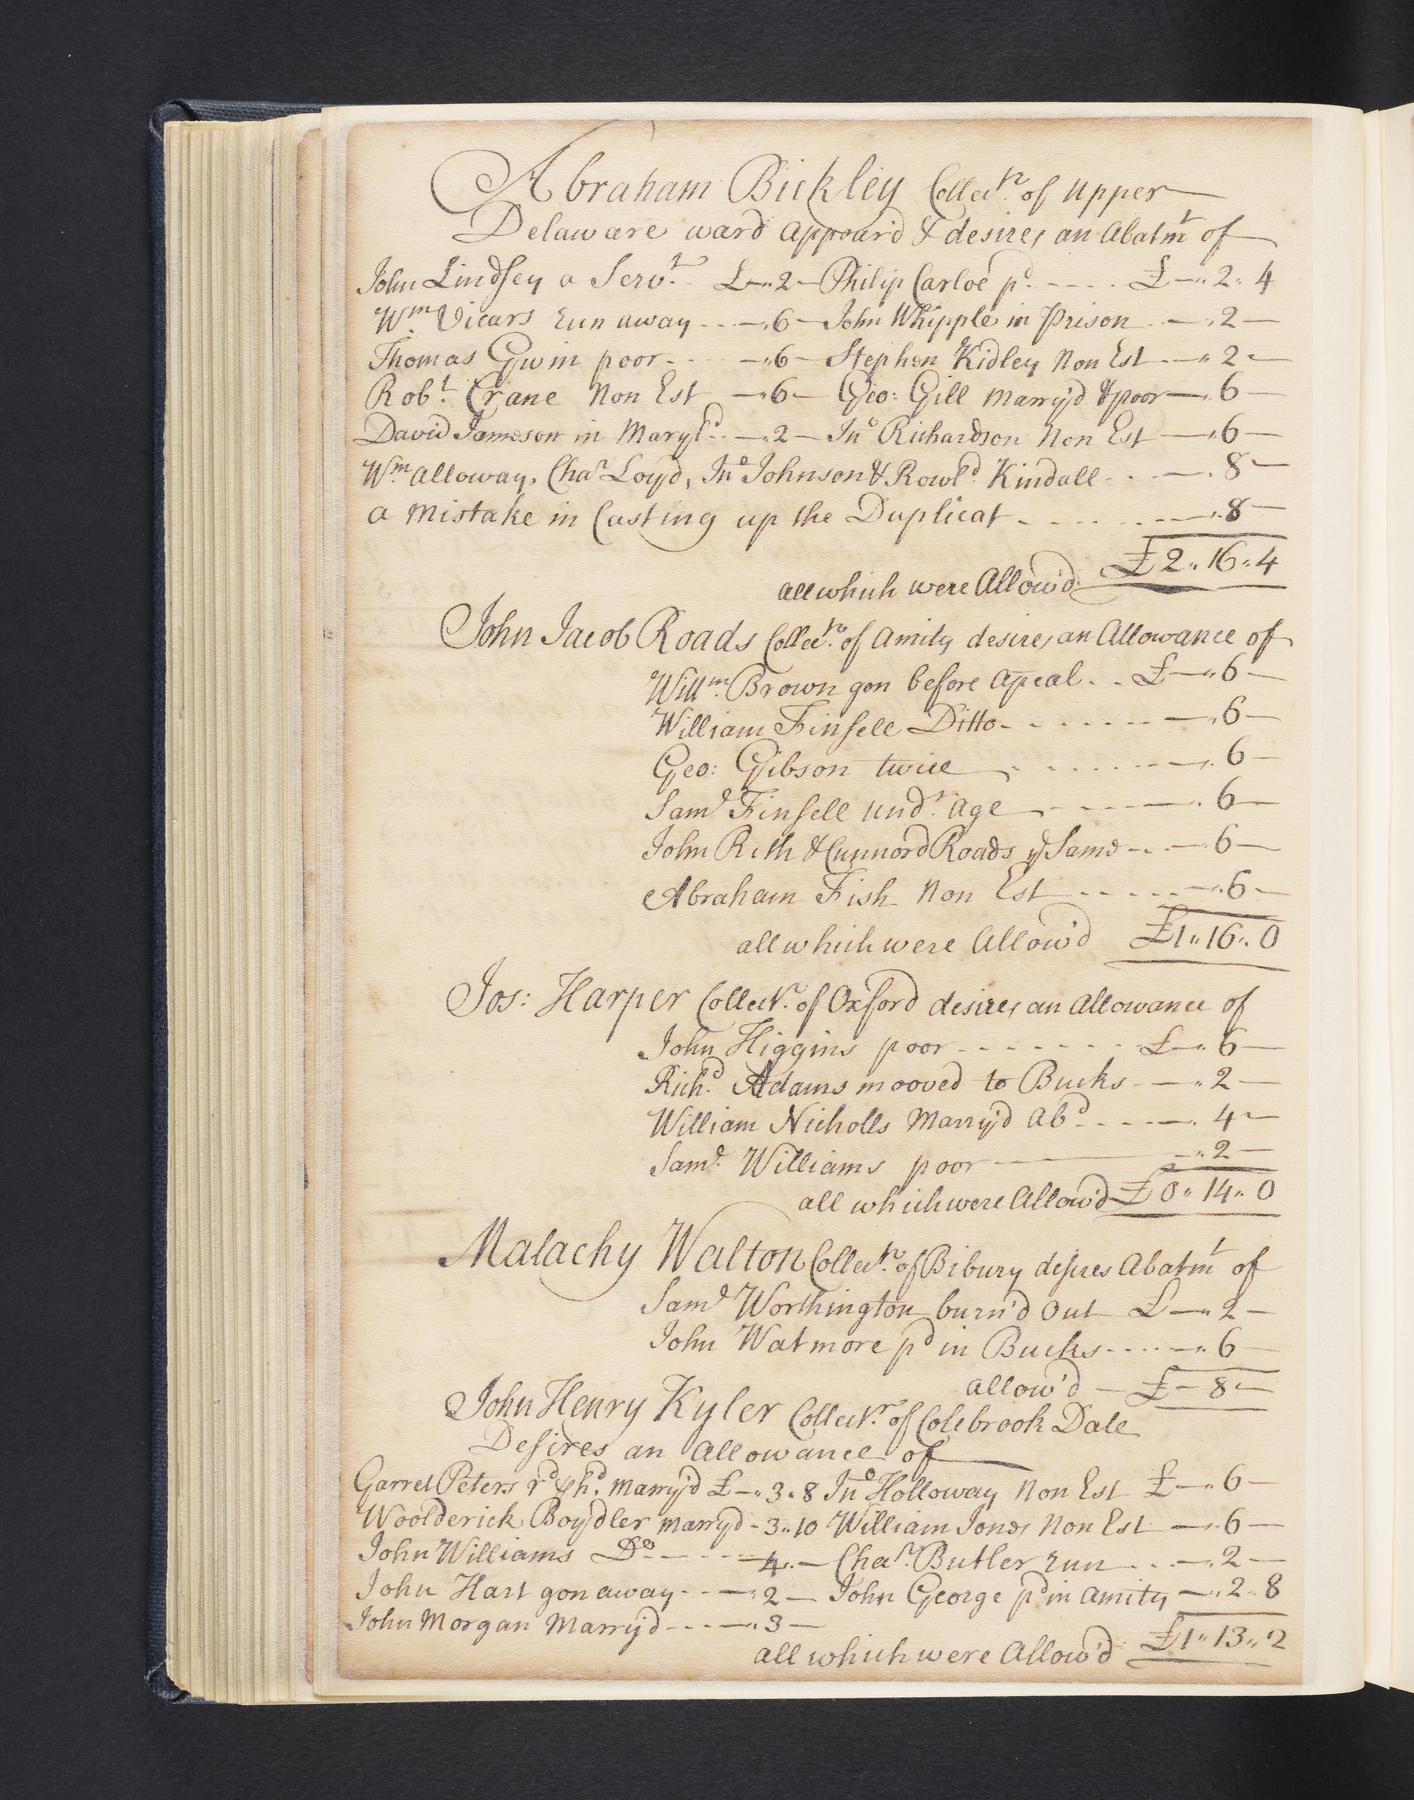 Abraham Bickley Collectr. of Upper
Delaware ward appear'd & desires an Abatmt of
John Lindsey a Servt. £—"2— Philip Carloe pd. £—"2"4
Wm Vicars run away —"6— John Whipple in Prison —"2—
Thomas Gwin poor —"6— Stephen Kidley Non Est —"2—
Robt. Crane Non Est —"6— Geo: Gill Marry'd & poor —"6—
David Jameson in Maryld. —"2— Jno Richardson Non Est —"6—
Wm. Alloway, Chas Loyd, Jno Johnson & Rowld Kindall —"8—
a Mistake in Casting up the Duplicat —"8—
£2"16"4
all which were Allow'd
John Jacob Roads Collectr. of Amity desires an Allowance of
Willm. Brown gon before apeal £—"6—
William Finsell Ditto —"6—
Geo: Gibson twice —"6—
Saml Finsell undr. Age —"6—
John Rith & Cunnord Roads ye Same —"6—
Abraham Fish Non Est —"6—
all which were Allow'd £1"16"0
Jos: Harper Collectr. of Oxford desires an Allowance of
John Higgins poor £—"6—
Richd. Adams mooved to Bucks —"2—
William Nicholls Marry'd Abd —"4—
Saml. Williams poor —"2—
all which were Allow'd £0"14"0
Malachy Walton Collectr. of Bibury desires Abatmt of
Saml Worthington burn'd out £—"2—
John Watmore pd in Bucks —"6—
allow'd — £—8—
John Henry Kyler Collectr. of Colebrook Dale
Desires an Allowance of
Garret Peters marry'd £—"3"8 Jno Holloway Non Est £—"6—
Woolderick Boydler marry'd —3"10 William Jones Non Est —"6—
John Williams Do —4"— Chas. Butler run —"2—
John Hart gon away —"2— John George pd in Amity —"2"8
John Morgan Marry'd —"3—
all which were Allow'd £1"13"2